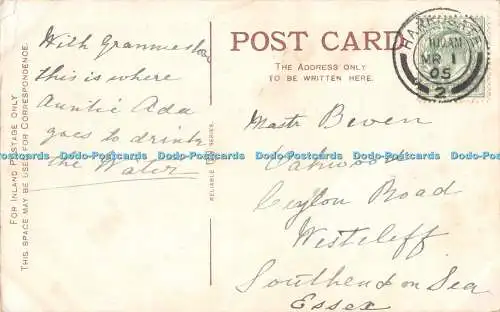 FOR INLAND POSTAGE ONLY
THIS SPACE MAY BE USED FOR CORRESPONDENCE.
With Grannies love
this is where
Auntie Ada
goes to drink
the Water
RELIABLE SERIES.
POST CARD
THE ADDRESS ONLY
TO BE WRITTEN HERE.
10 AM
MR 1
05
2
Mastr Beven
Oakwood
Ceylon Road
Westcliff
Southend on Sea
Essex
Dodo-Postcards Dodo-Postcards Dodo-Postcards Dodo-Postcards Dodo-Postcards Dodo-Postcards